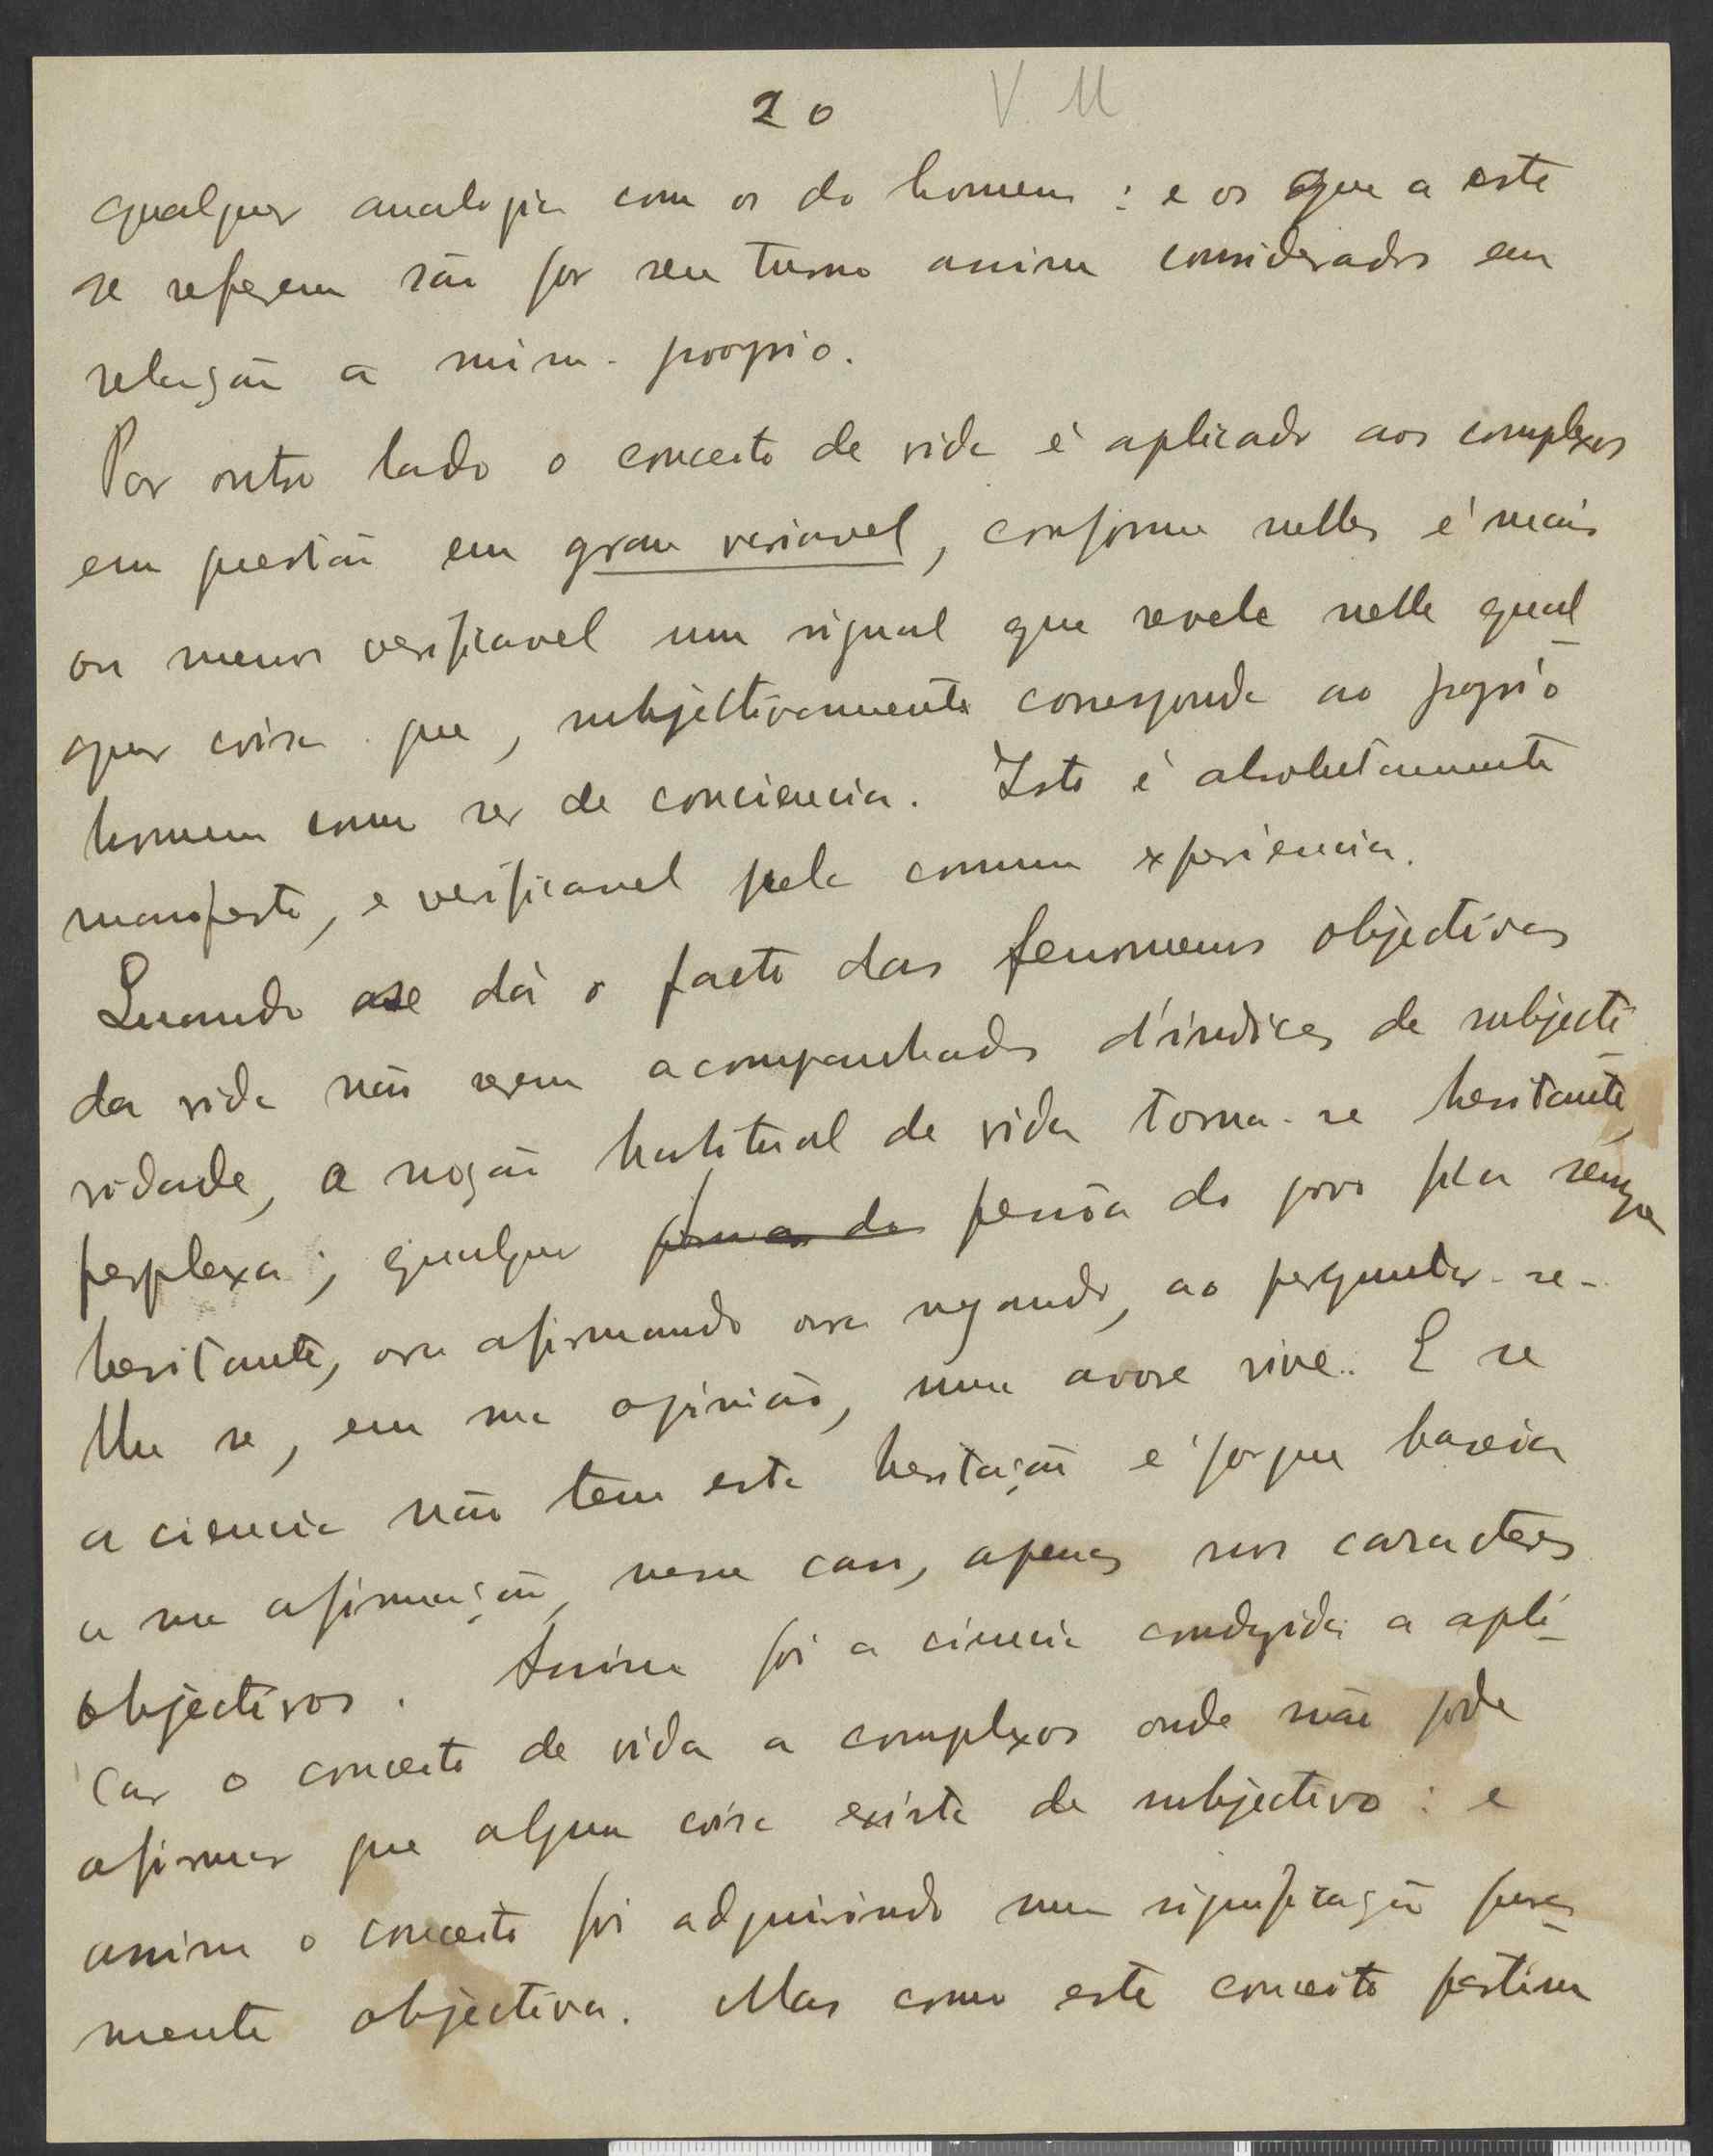 20 V. M
qualquer analogia com os do homem : e os que a este
se referem são por seu turno assim considerados em
relação a mim-proprio.
Por outro lado o conceito de vida é aplicado aos complexos
em questão em grau variavel, conforme nelles é mais
ou menos verificavel um signal que revele nelle qual-
quer coisa que, subjectivamente corresponde ao proprio
homem como ser de conciencia. Isto é absolutamente
manifesto, e verificavel pela comum experiencia.
Quando se dá o facto dos fenomenos objectivos
da vida não serem acompanhados d'indices de subjecti-
vidade, a noção habitual de vida torna-se hesitante,
perplexa; qualquer pessôa do povo fica sempre
hesitante, ora afirmando ora negando, ao perguntar-se-
lhe se, em sua opinião, uma arvore vive. E se
a ciencia não tem esta hesitação é porque baseia
a sua afirmação, nesse caso, apenas nos caracteres
objectivos. Assim foi a ciencia conduzida a apli-
car o conceito de vida a complexos onde não pode
afirmar que alguma coisa exista de subjectivo : e
assim o conceito foi adquirindo uma significação pura-
mente objectiva. Mas como este conceito partira